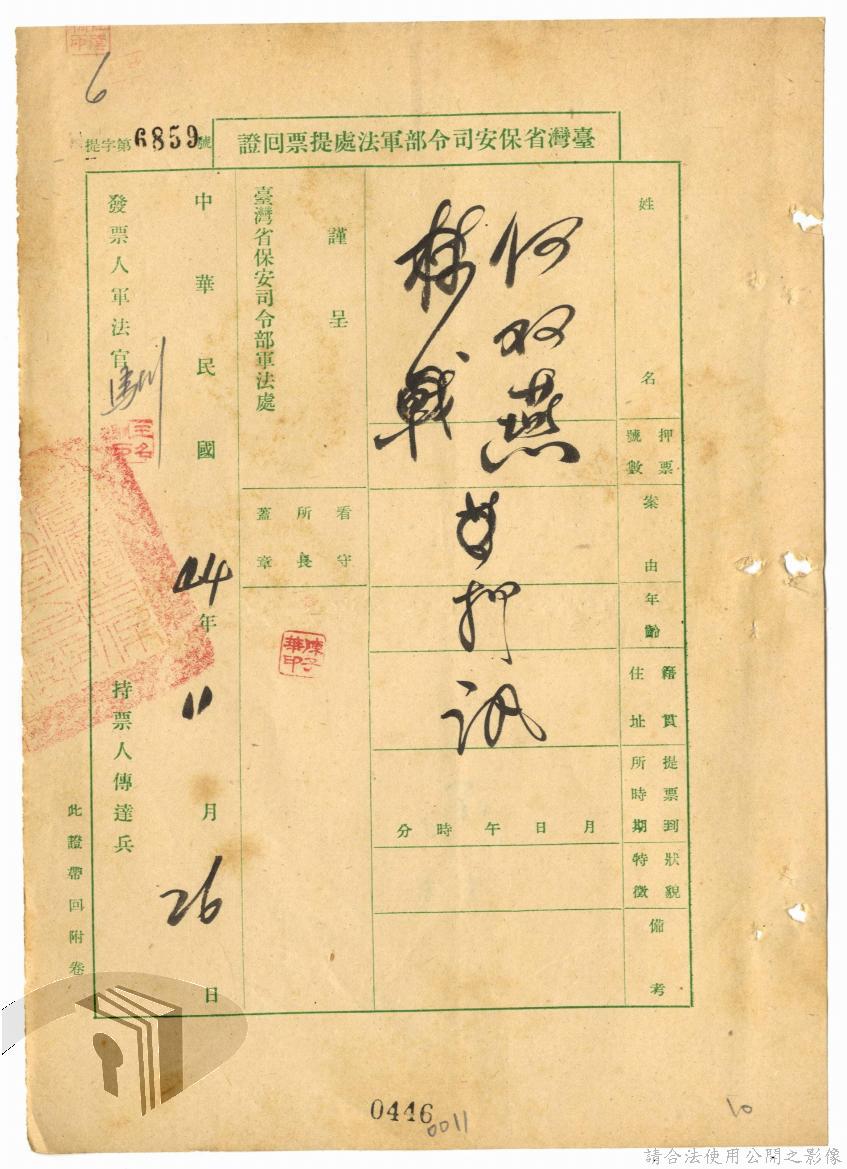 6
提字第6859號
臺灣省保安司令部軍法處提票回證
姓名
押票號數
案由
年齡
籍貫住址
提票到所時期
狀貌特徵
備考
何双燕
林戰
押訊
月日午時分
謹呈
臺灣省保安司令部軍法處
看守所長蓋章
陳子華印
中華民國44年11月26日
發票人軍法官
持票人傳達兵
此證帶回附卷
0446
0011
10
請合法使用公開之影像